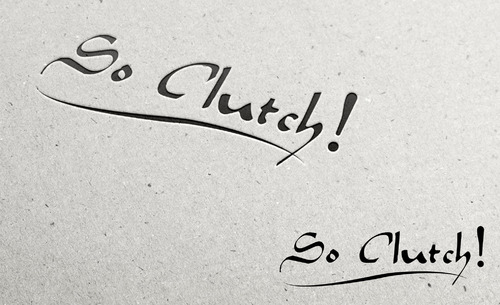 So Clutch!
So Clutch!